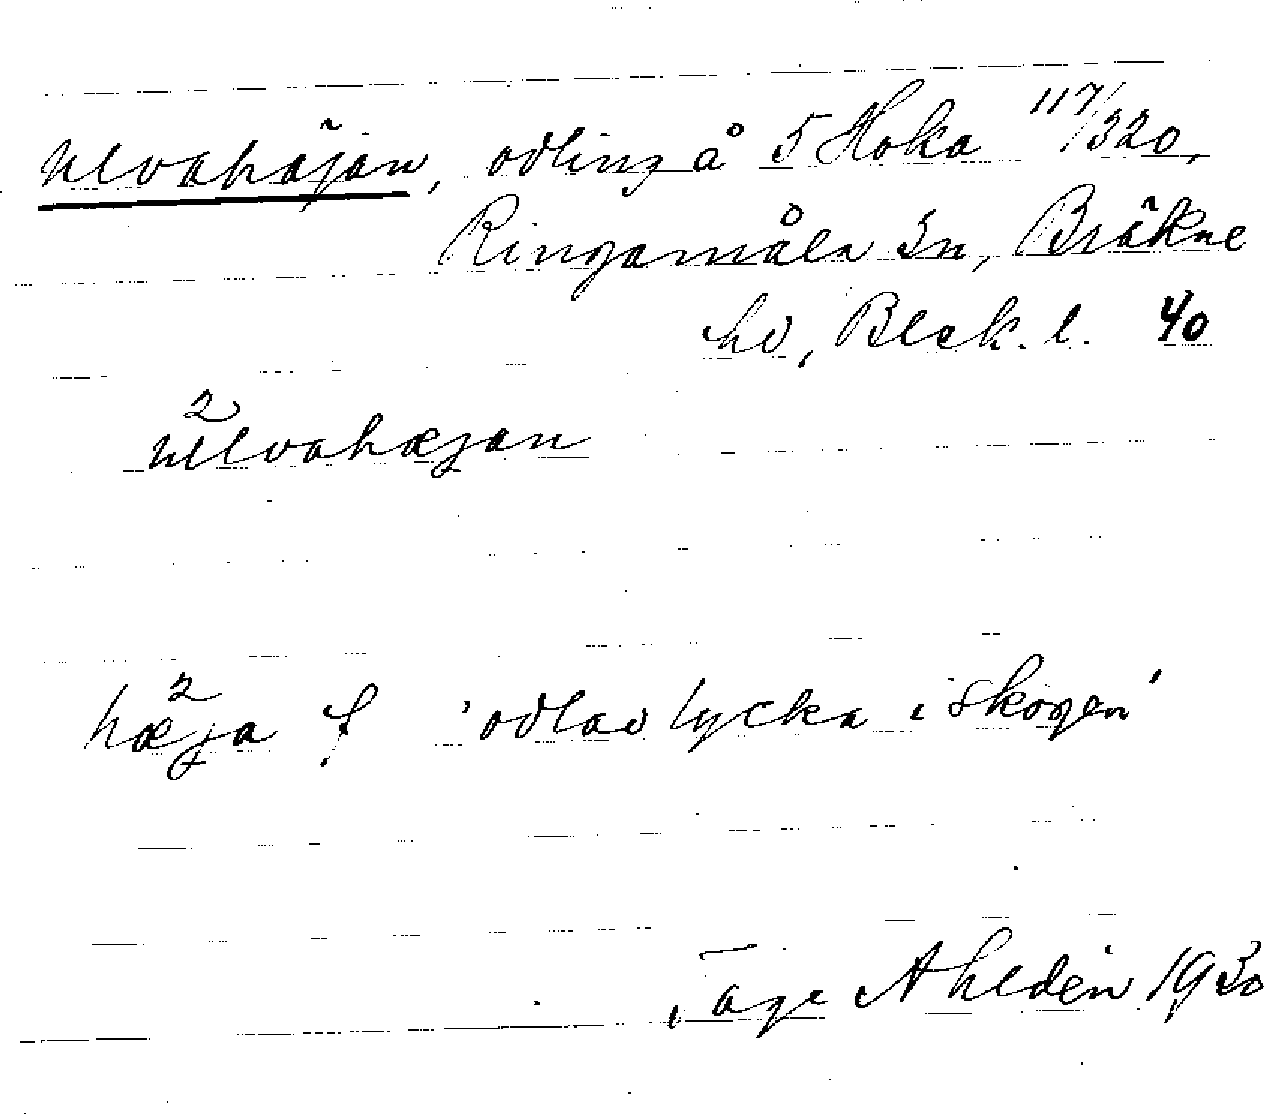 Ulvahäjan, odling å 5 Hoka 117/320,
Ringamåla sn, Bräkne
hd, Blek. l. 40
ulvahæjan
hæja f 'odlad lycka i skogen'
Tage Ahldén 1930